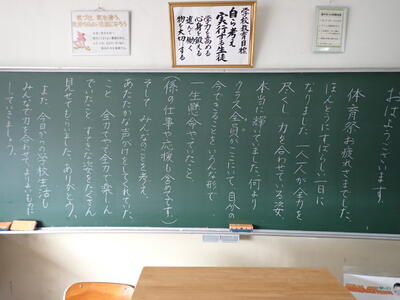 おはようございます。
体育祭お疲れさまでした。
ほんとうにすばらしい一日に
なりました。一人一人が全力を
尽くし、力を合わせている姿、
本当に輝いていました。何より
クラス全員がここにいて、自分の
今できることをいろんな形で
一生懸命やっていたこと、
(係の仕事や応援も含めてです)
そして みんなのことを考え、
あたたかな声かけをしてくれていた
こと、全力でやって全力で楽しん
でいたこと、すてきな姿をたくさん
見せてもらいました。ありがとう。
また、今日からの学校生活も
みんなで力を合わせてよりよいものに
していきましょう。
学校教育目標
自ら考え
実行する生徒
学力を高める
心身を鍛える
進んで働く
物を大切にする